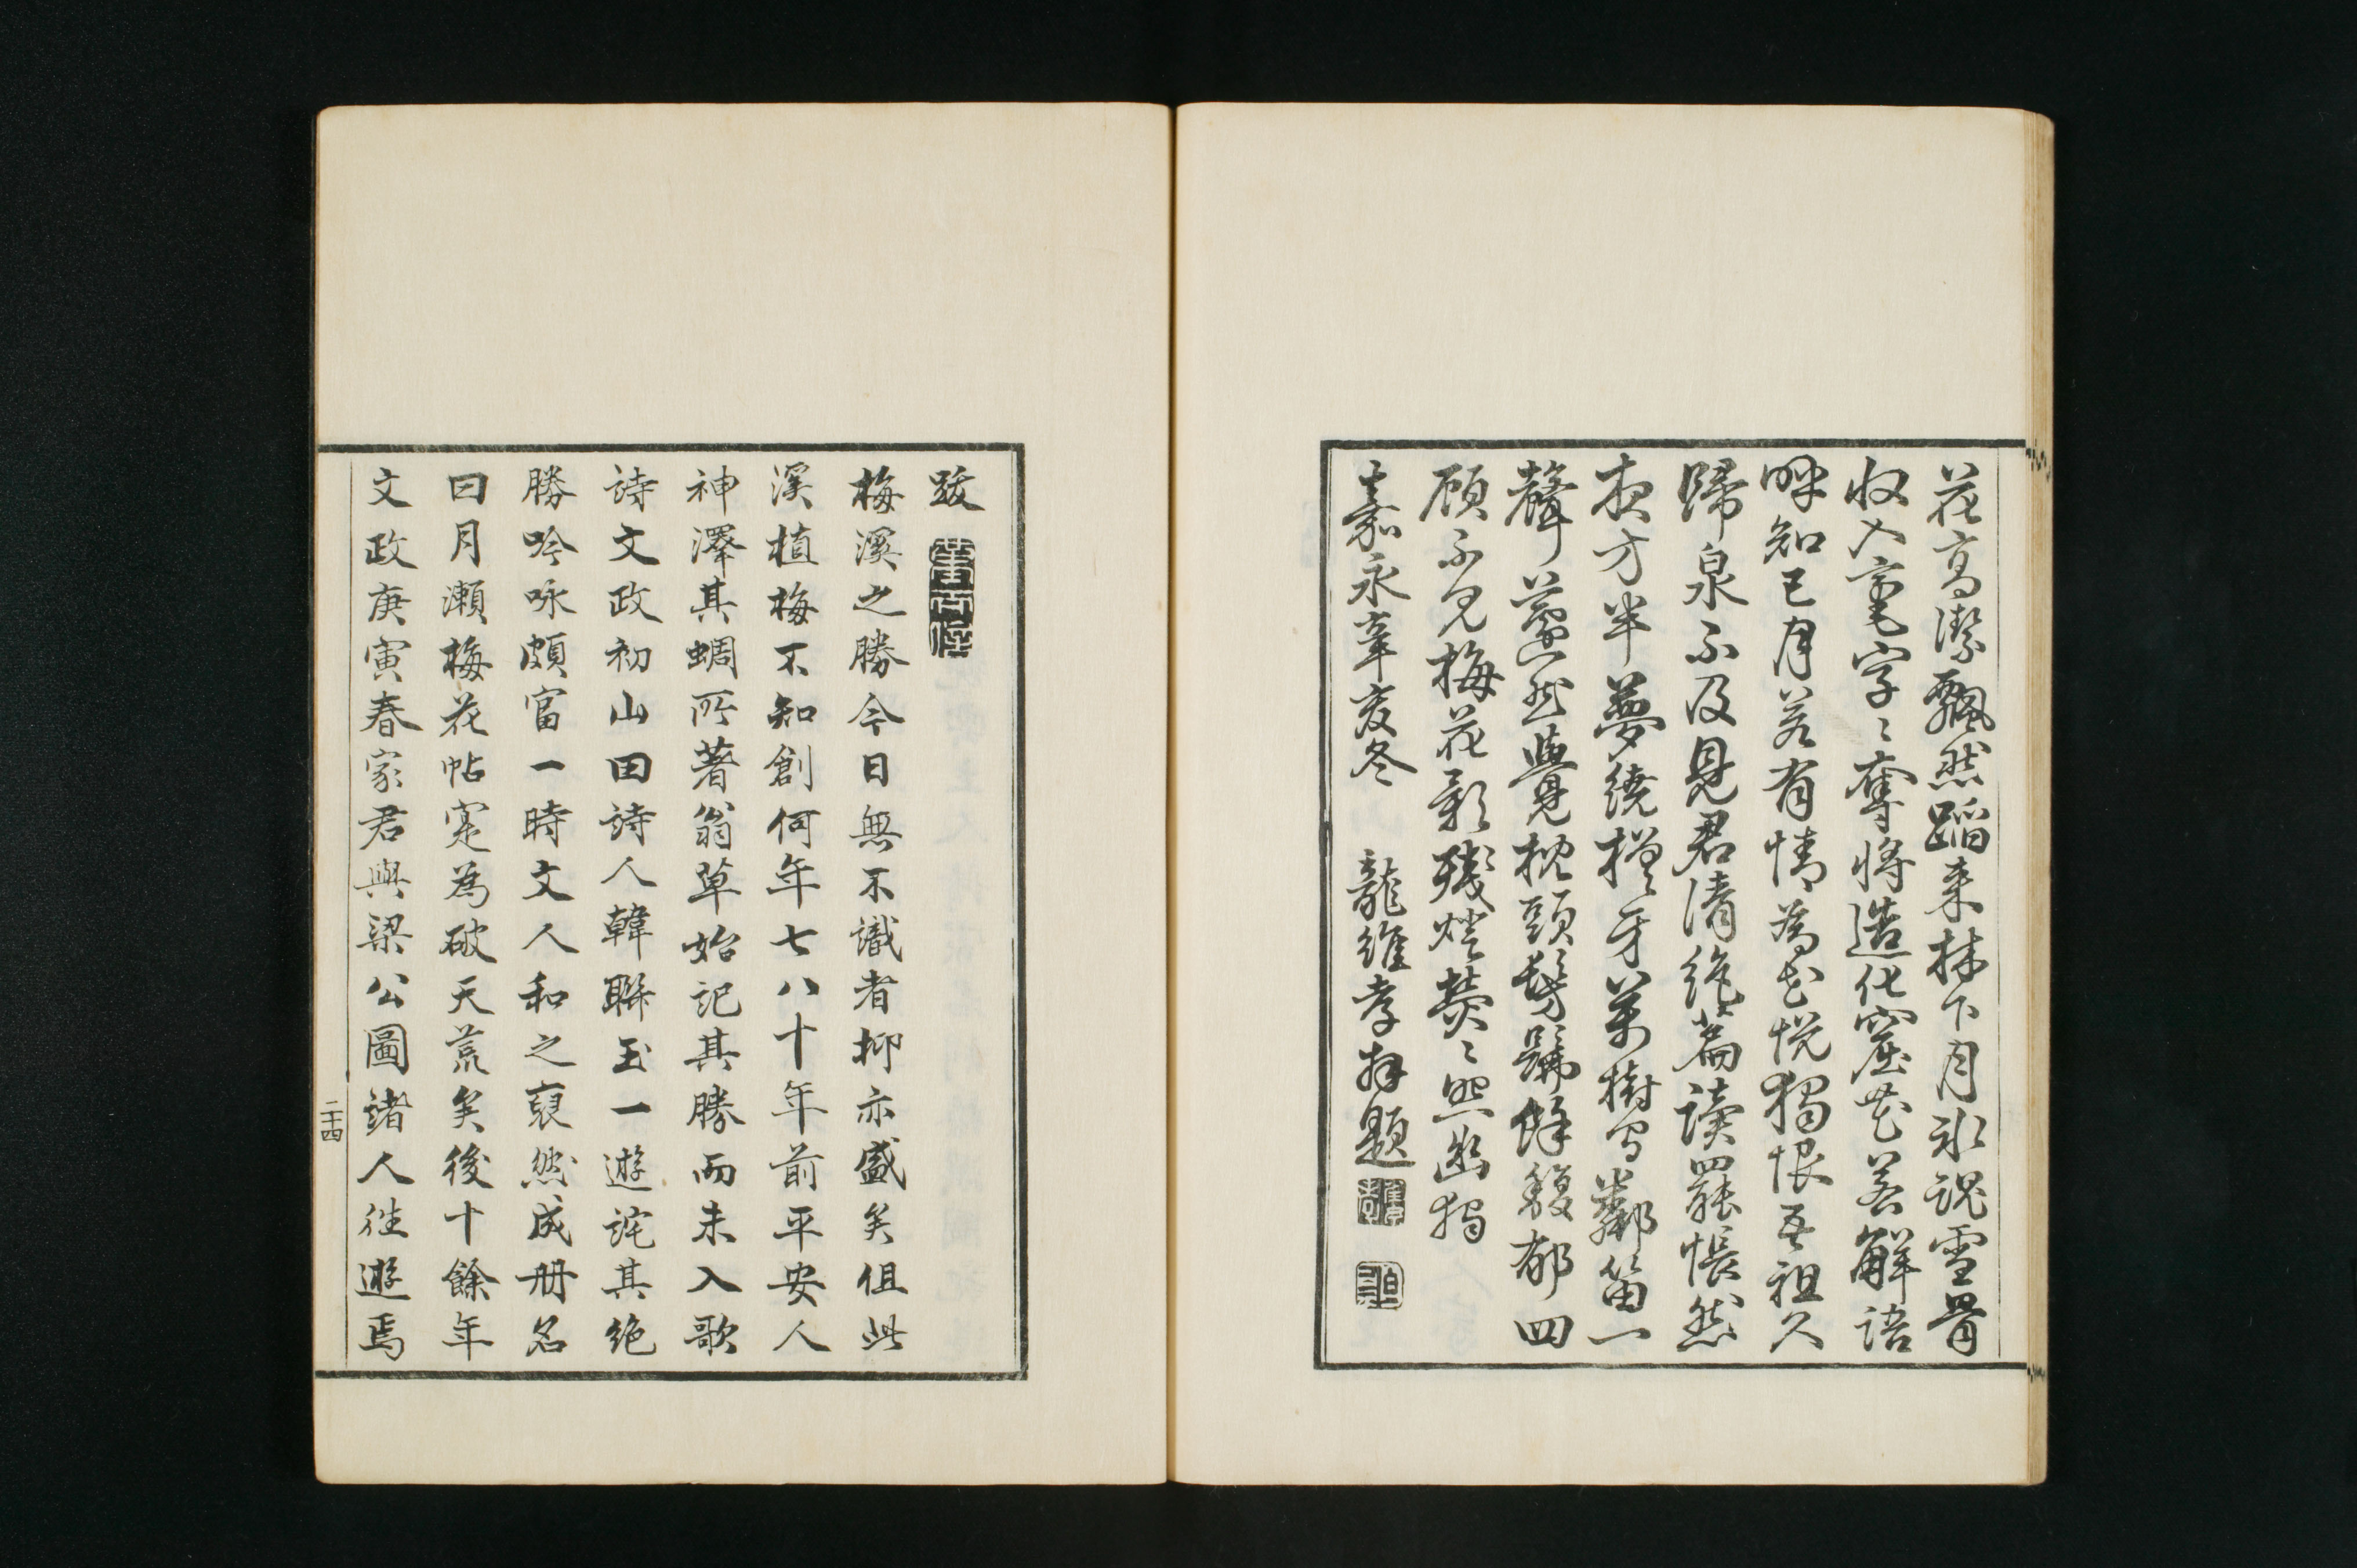 花高潔飄然蹈來林下月氷魂雪骨
收入毫字〻奪將造化窟花若解語
呼知已月若有情為君悅獨恨吾祖久
歸泉不及見君清絶篇讀罷悵然
夜方半夢繞槎牙萬樹寫鄰笛一
聲蘧然覺枕頭髣髴餘馥郁四
顧不見梅花影殘燈熒〻照幽獨
嘉永辛亥冬　龍維孝拜題
跋
梅溪之勝今日無不識者抑亦盛矣但此
溪植梅不知創何年七八十年前平安人
神澤其蜩所著翁草始記其勝而未入歌
詩文政初山田詩人韓聯玉一遊詫其絶
勝吟咏頗富一時文人和之裒然成册名
曰月瀬梅花帖寔為破天荒矣後十餘年
文政庚寅春家君與梁公圖諸人徃遊焉
二十四